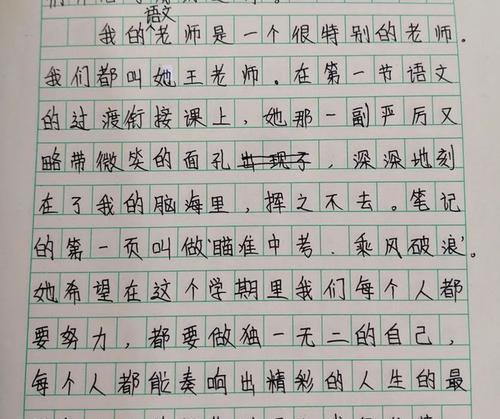 语文
我的老师是一个很特别的老师。
我们都叫她王老师。在第一节语文
的过渡衔接课上,她那一副严厉又
略带微笑的面孔出现了,深深地刻
在了我的脑海里,挥之不去。笔记
的第一页叫做‘瞄准中考.乘风破浪’。
她希望在这个学期里我们每个人都
要努力,都要做独一无二的自己,
每个人都能奏响出精彩的人生的最